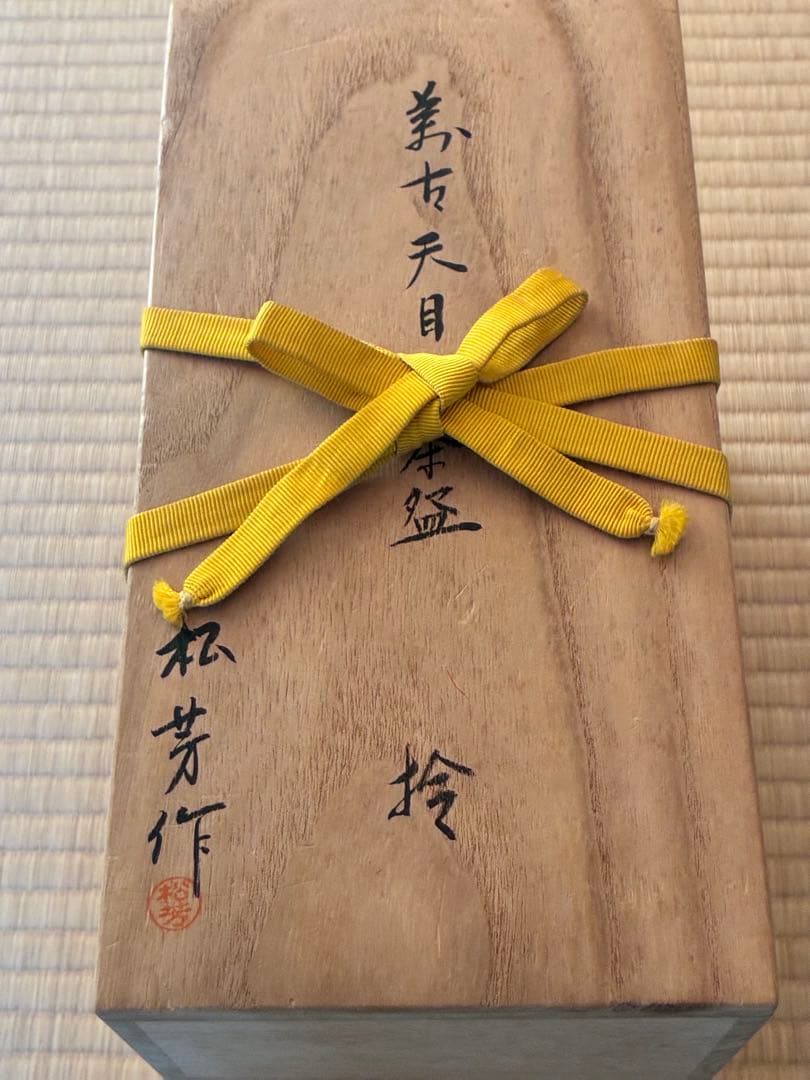 萬古天目茶盌
拾
松芳作
松芳